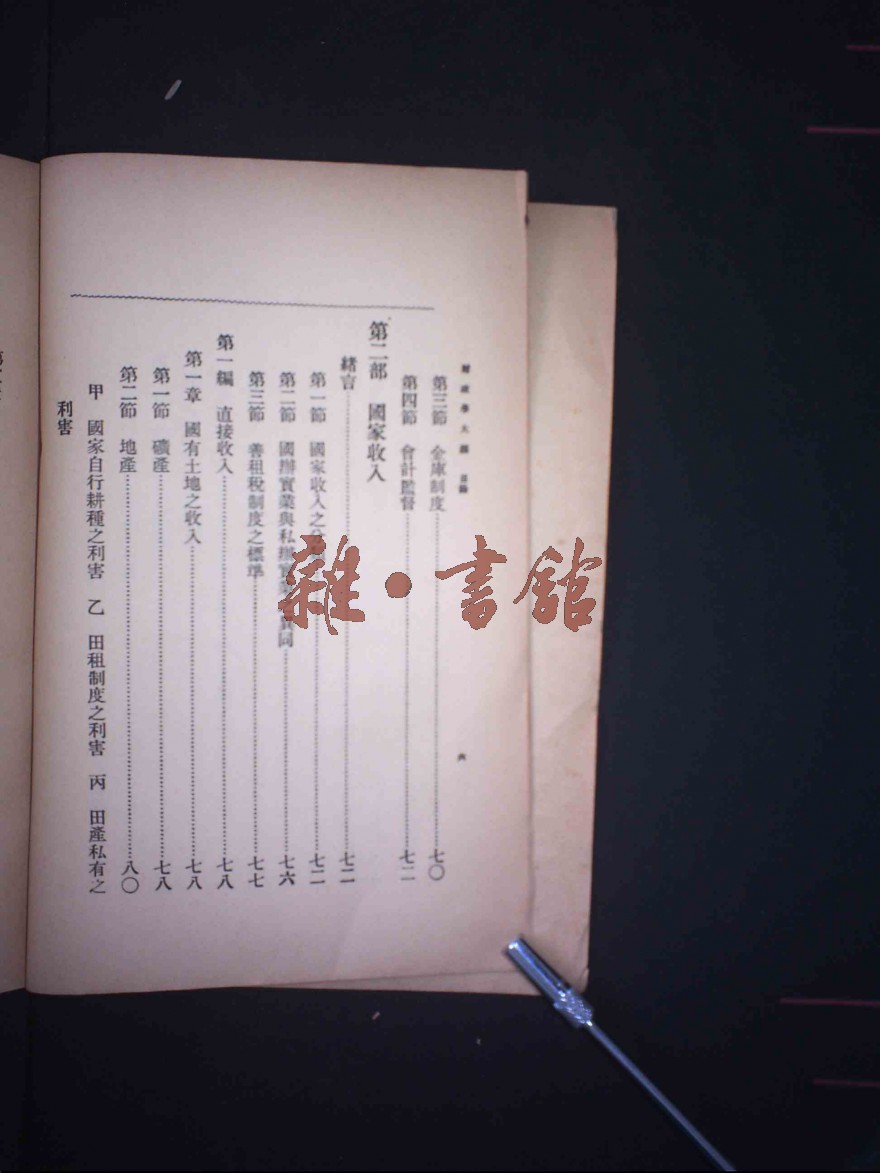 財政學大綱 目錄
六
第三節 金庫制度……七〇
第四節 會計監督……七二
第二部 國家收入
緒言……七二
第一節 國家收入之分……七二
第二節 國辦實業與私辦實……同……七六
第三節 善租稅制度之標準……七七
第一編 直接收入……七八
第一章 國有土地之收入……七八
第一節 礦產……七八
第二節 地產……八〇
甲 國家自行耕種之利害 乙 田租制度之利害 丙 田產私有之
利害
雜·書館